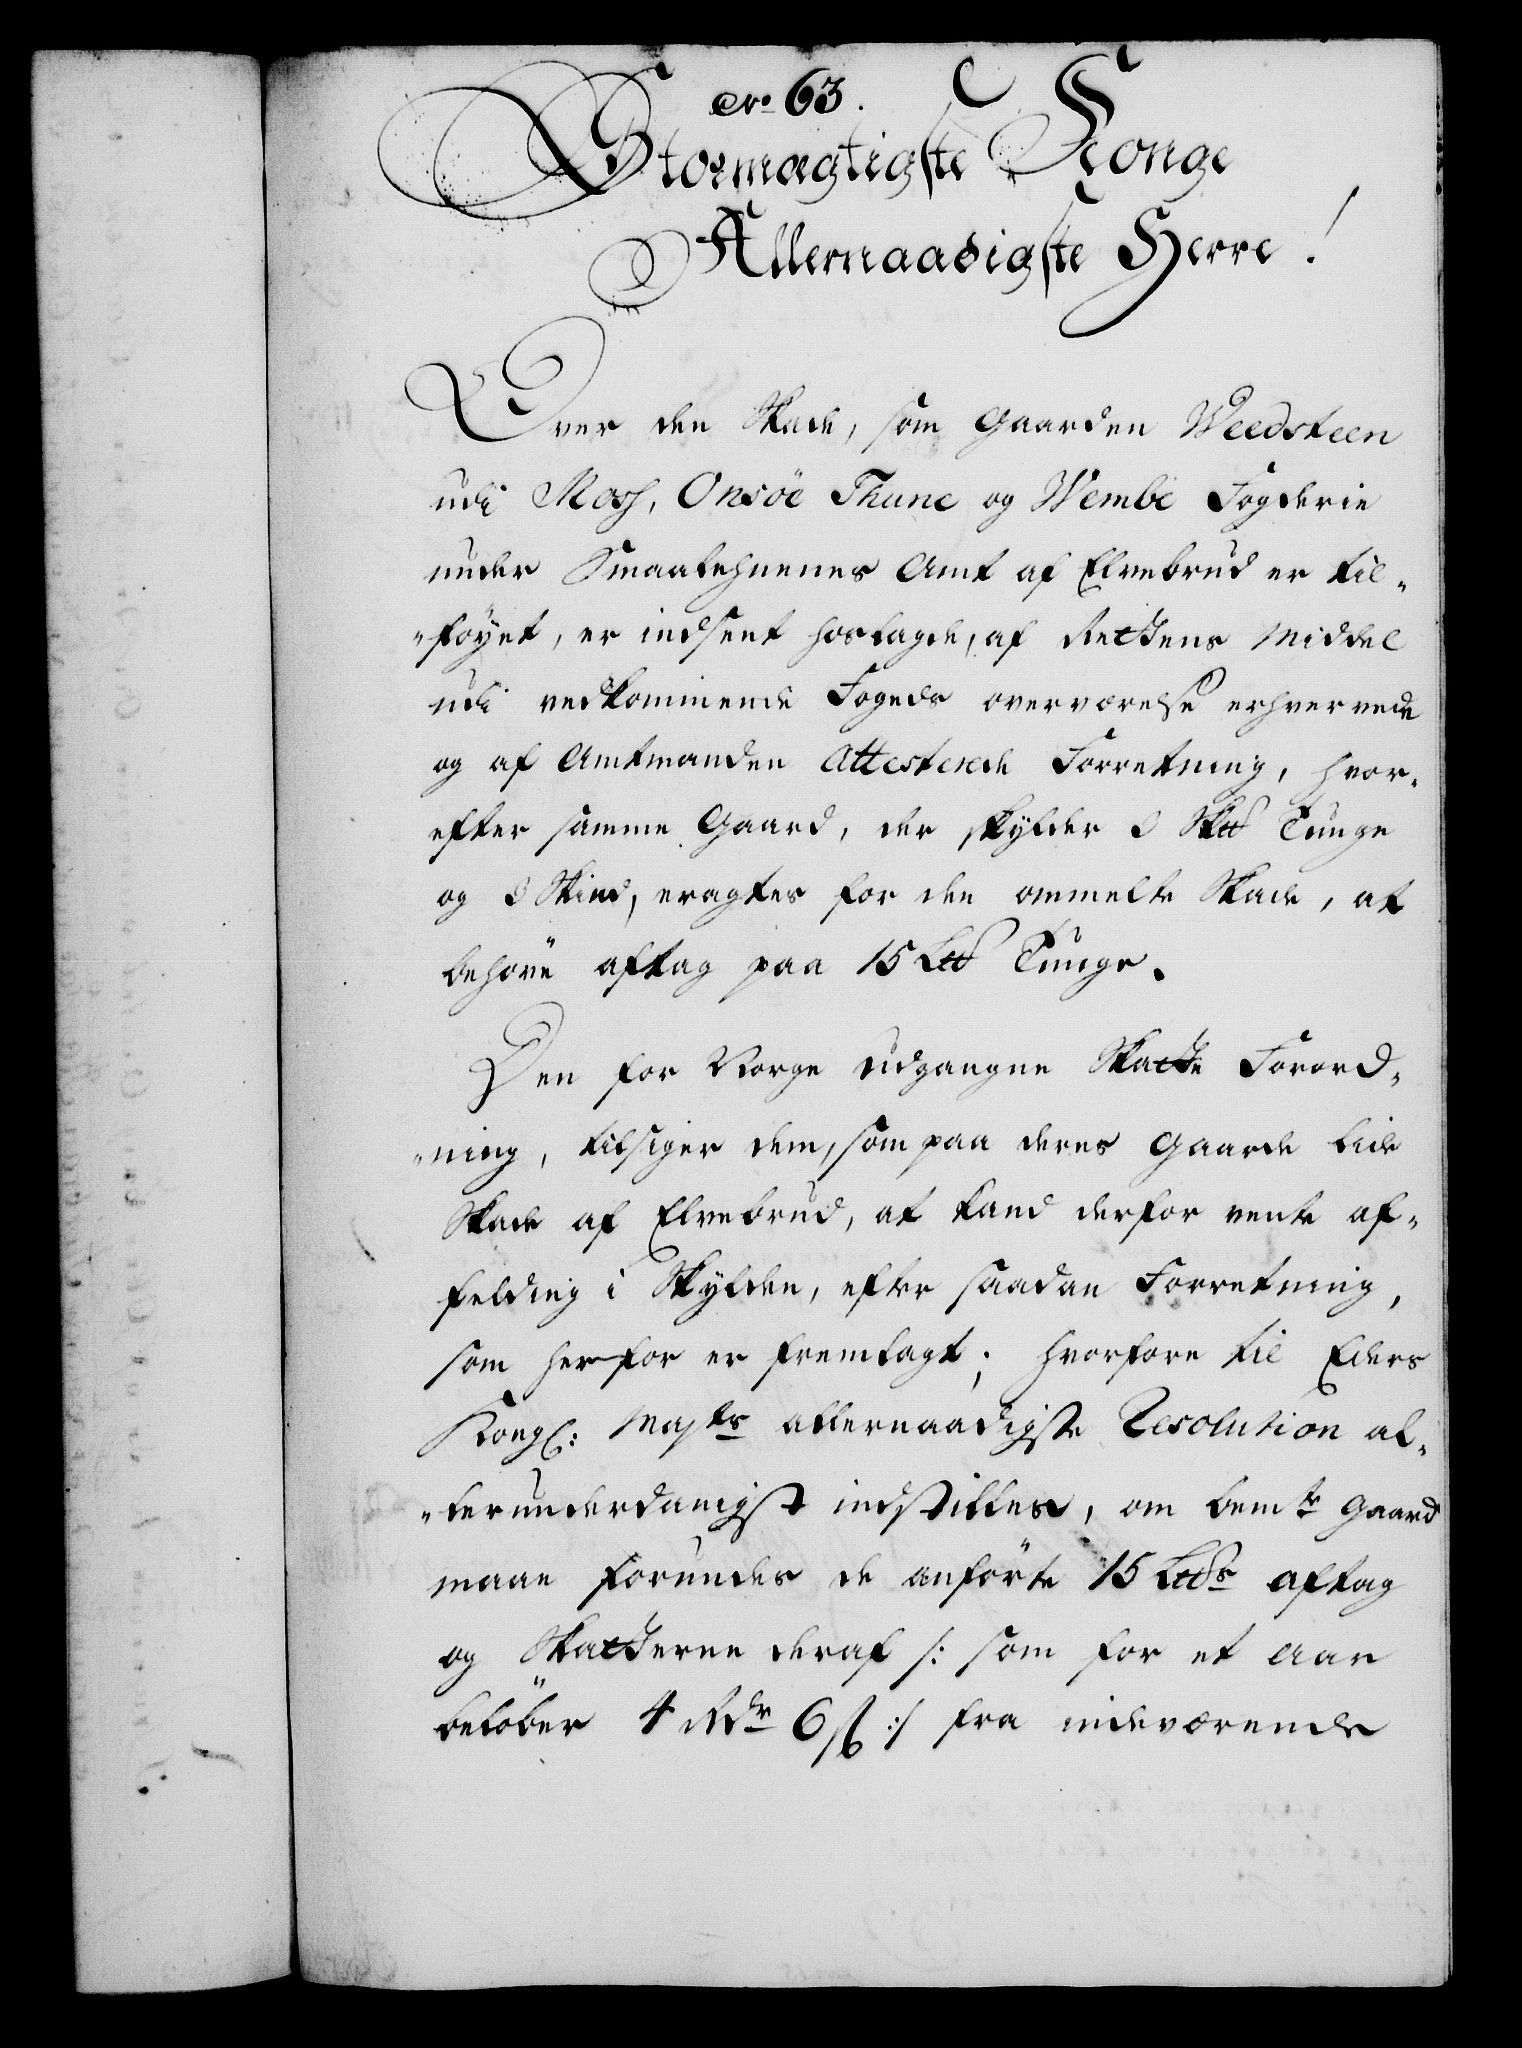 No 63.
Stormægtigste Konge
Allernaadigste Herre!
Over den Skade, som Gaarden Weedsteen
udi Moss, Onsöe Thune og Wembe Fogderie
under Smaalehnenes Amt af Elvebrud er til-
-föyet, er indsent hoslagde, af Rettens Middel
udi vedkommende Fogeds overværelse erhvervede
og af Amtmanden Attesterede Forretning, hvor-
efter samme Gaard, der skylder 3 Sk℔ Tunge
og 3 Skind, eragtes for den ommelte Skade, at
behöve aftag paa 15 L℔ Tunge.
Den for Norge udgangne Skatte Forord-
-ning, tilsiger dem, som paa deres Gaarde lide
Skade af Elvebrud, at kand derfor vente af-
felding i Skylden, efter saadan Forretning,
som her for er fremlagt; hvorfore til Eders
Kongl: Majts allernaadigste Resolution al-
-lerunderdanigst indstilles, om bemte Gaard
maae forundes de anförte 15 L℔s aftag
og Skatterne deraf /: som for et Aar
belöber 4 Rdr 6 ß :/ fra indeværende